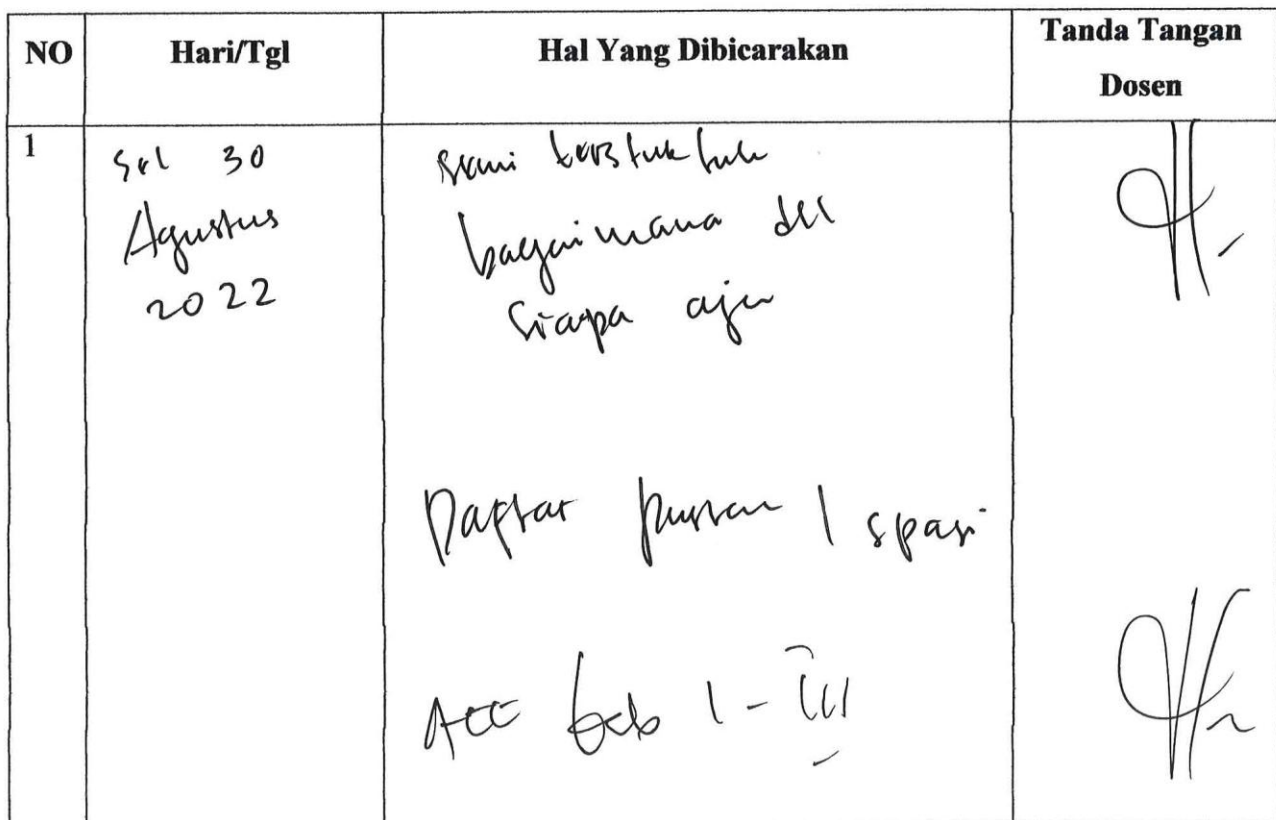 NO Hari/Tgl Hal Yang Dibicarakan Tanda Tangan
Dosen
1
Sel 30
Agustus
2022
semi terstuktuk
bagaimana dll
siapa aja
Daftar pustaka 1 spasi
Acc bab I - III